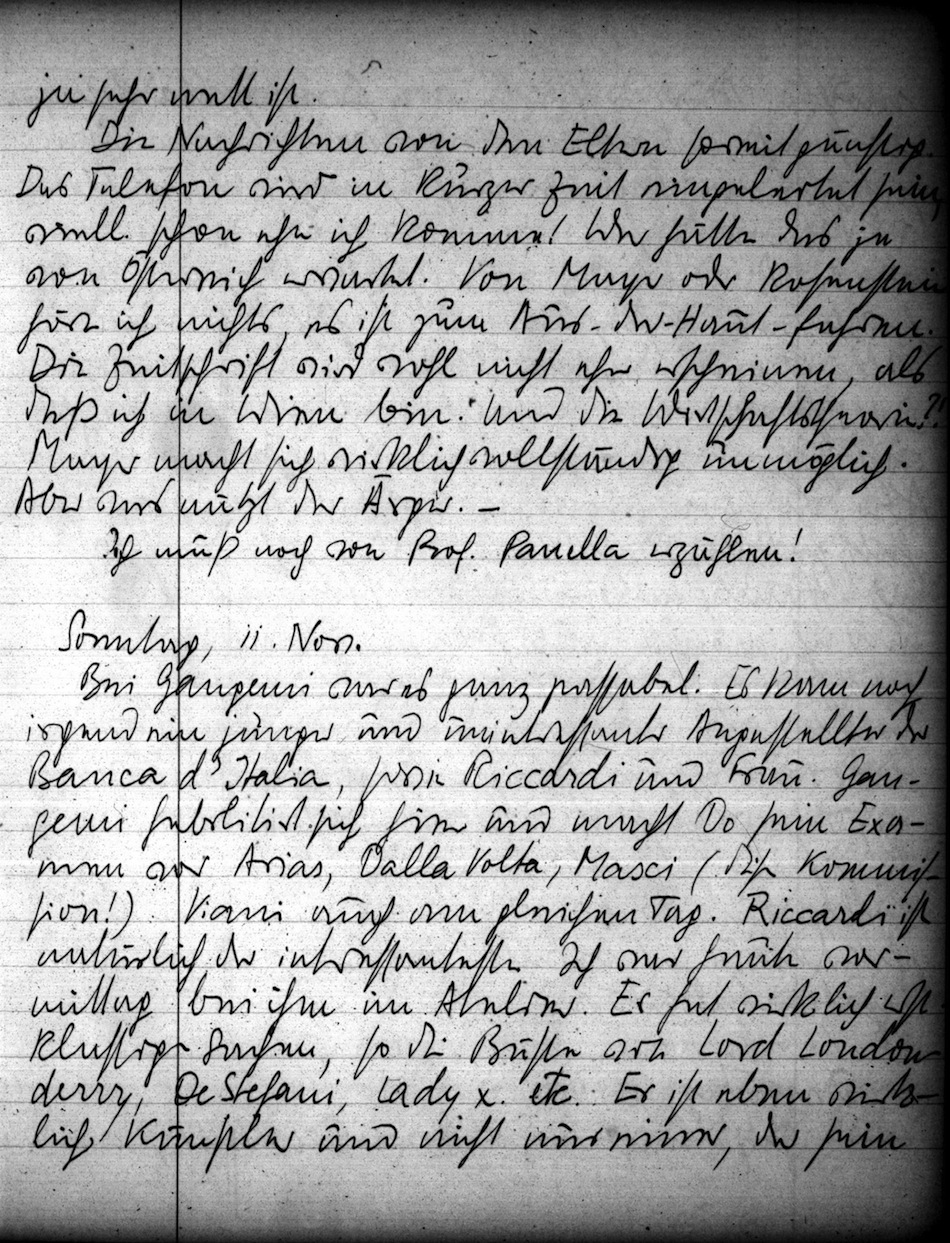 ja sehr nett ist.
Die Nachrichten von den Eltern soweit günstig.
Das Telefon wird in kurzer Zeit eingeleitet sein,
viell. schon ehe ich komme! Wer hätte das je
von Österreich erwartet. Von Mayer oder Rosenstein
höre ich nichts, es ist zum Aus-der-Haut-fahren.
Die Zeitschrift wird wohl nicht eher erscheinen, als
daß ich in Wien bin. Und die Wirtschaftstheorie??
Mayer macht sich wirklich vollständig unmöglich.
Aber was nützt der Ärger. –
Ich muß noch von Prof. Panella erzählen!
Sonntag, 11. Nov.
Bei Gangemi war es ganz passabel. Es kam noch
irgend ein junger und uninteressanter Angestellter der
Banca d'Italia, sowie Riccardi und Frau. Gan-
gemi habilitiert sich hier und macht Do sein Exa-
men vor Arias, Dalla Volta, Masci (diese Kommis-
sion!) Viani auch am gleichen Tag. Riccardi ist
natürlich der interessanteste. Ich war heute vor-
mittag bei ihm im Atelier. Er hat wirklich erst-
klassige Sachen, so die Büsten von Lord London-
derry, De Stefani, Lady x. etc. Er ist eben wirk-
lich Künstler und nicht nur einer, der sein